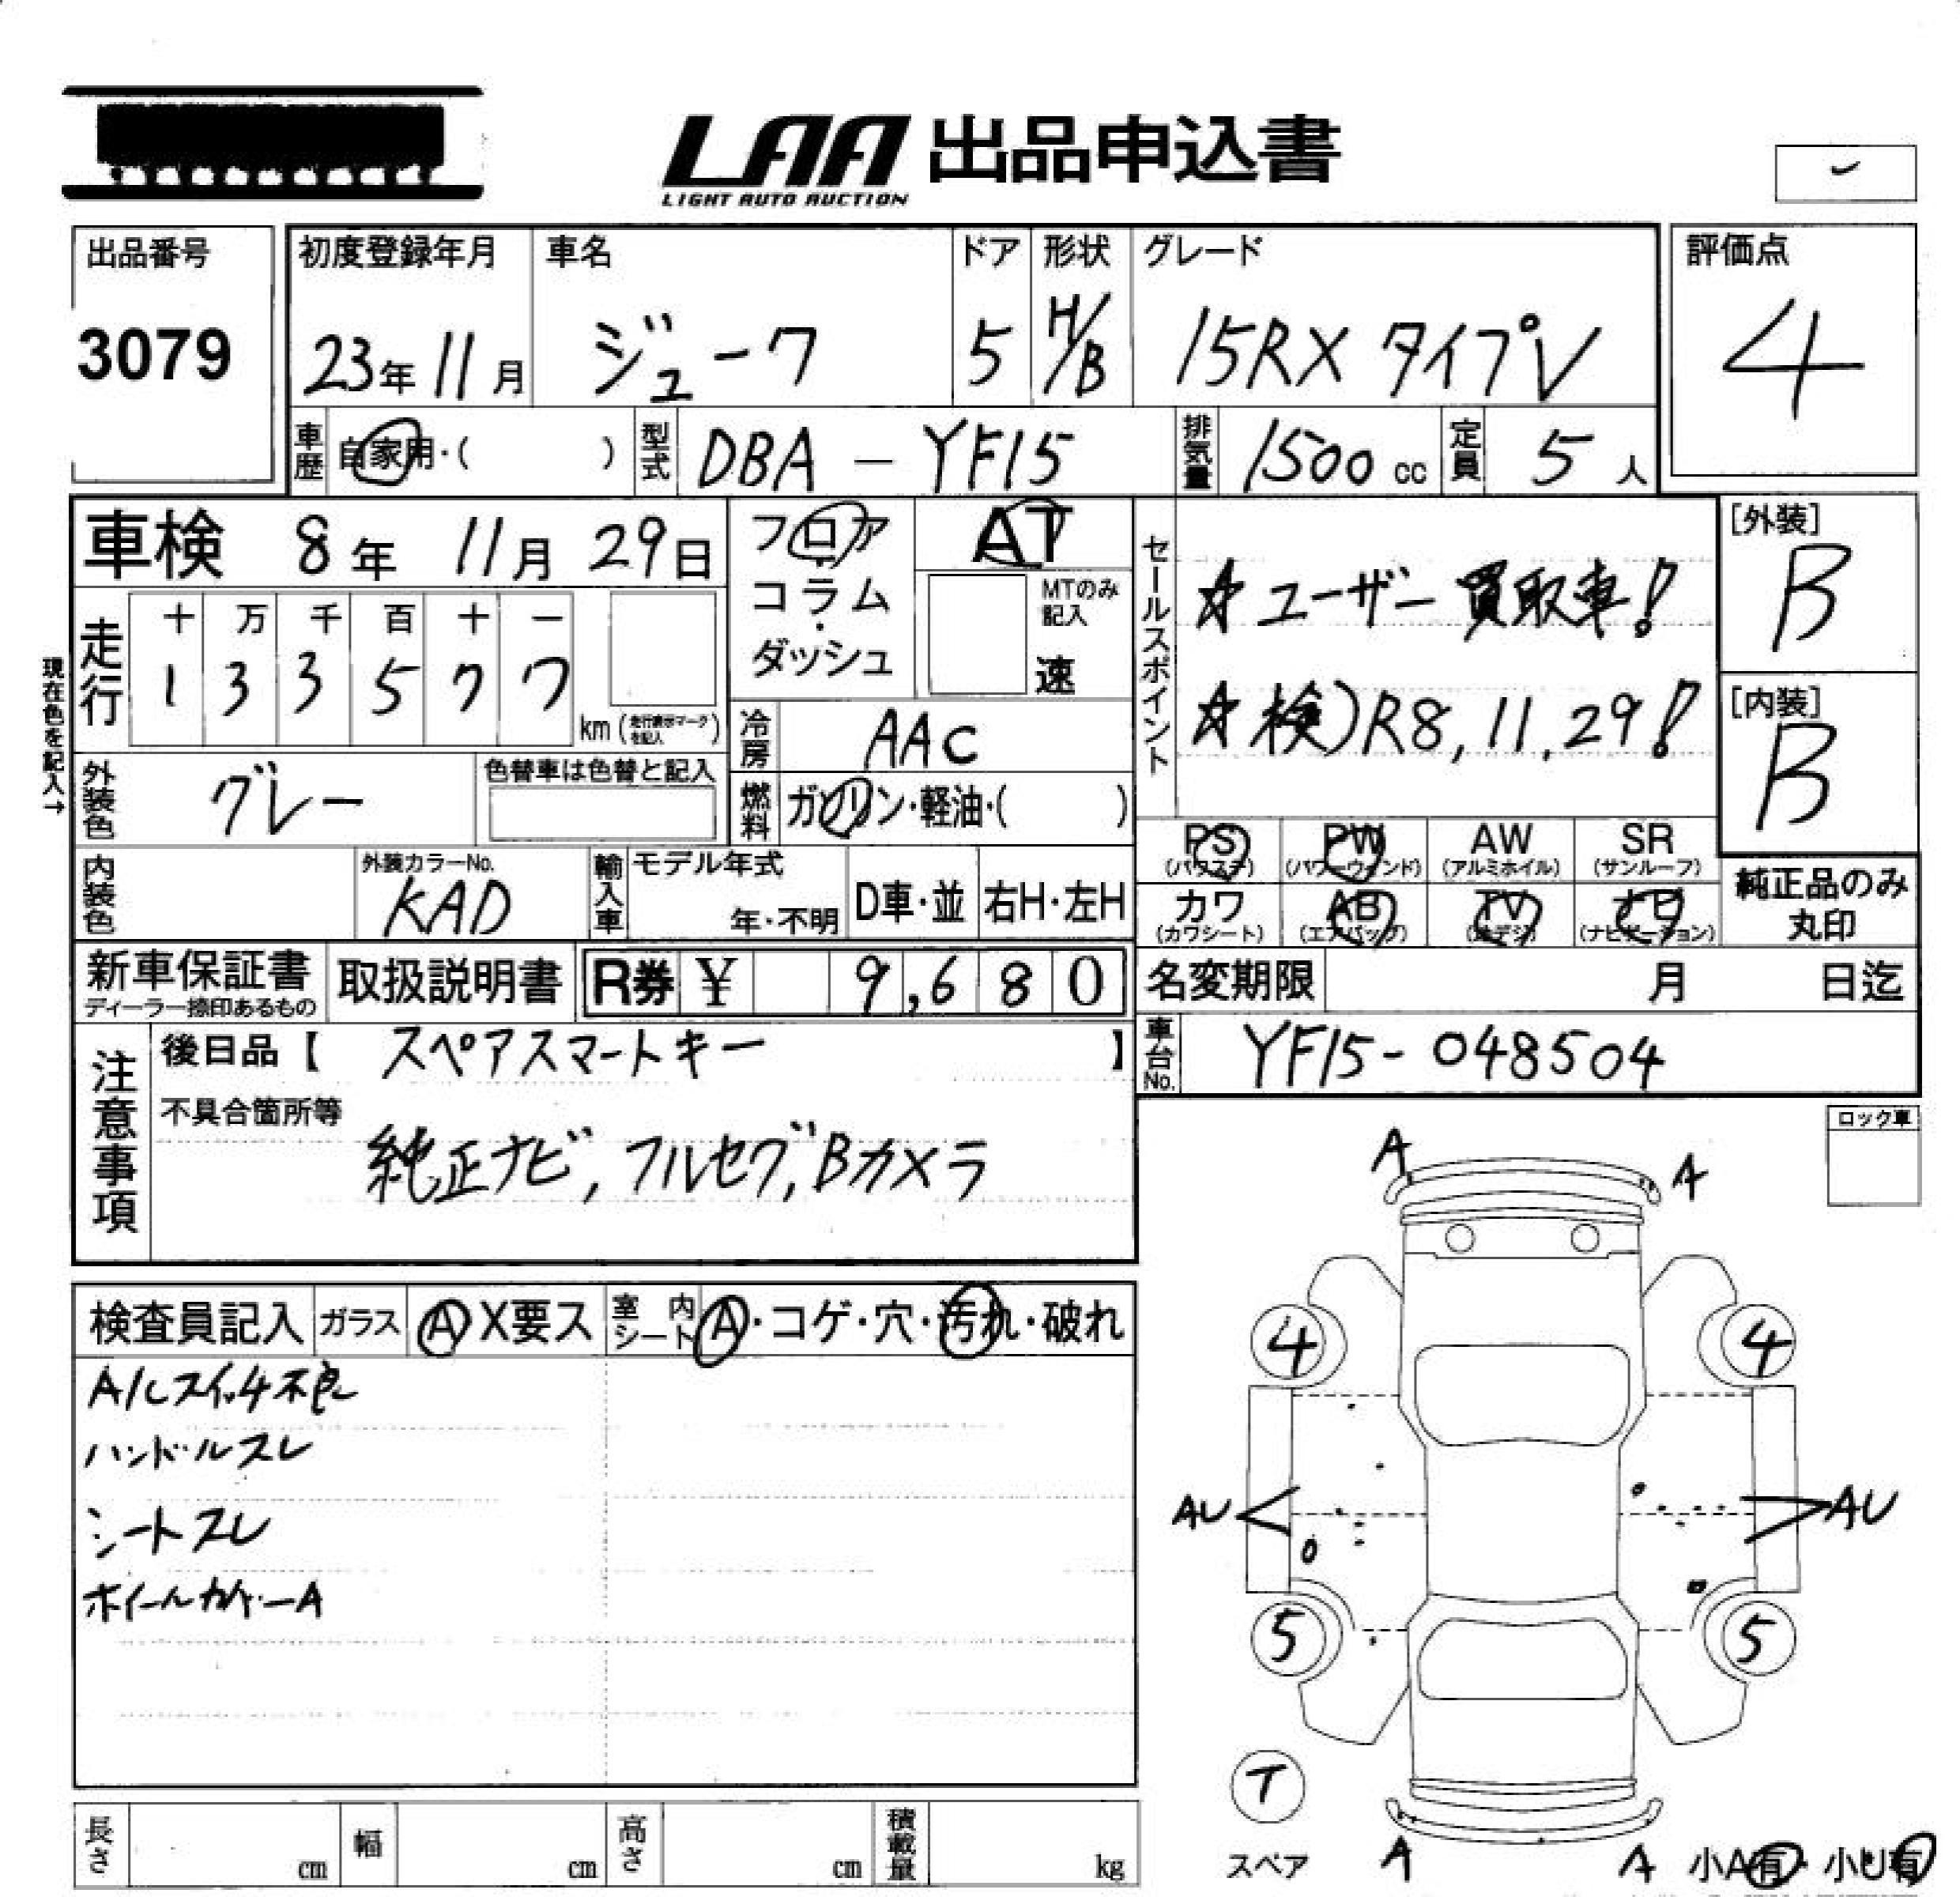 LAA 出品申込書
LIGHT AUTO AUCTION
出品番号
3079
初度登録年月
23年 11月
車名
ジューク
ドア
5
形状
H/B
グレード
15RX タイプV
評価点
4
車歴
自家用・( )
型式
DBA - YF15
排気量
1500 cc
定員
5 人
車検 8年 11月 29日
フロア
・
コラム
・
ダッシュ
AT
MTのみ
記入
速
セールスポイント
☆ユーザー買取車!
☆検)R8,11.29!
[外装]
B
[内装]
B
現在色を記入→
走行
十 万 千 百 十 一
1 3 3 5 7 7
km (走行表示マークを記入)
冷房
AAC
外装色
グレー
色替車は色替と記入
燃料
ガソリン・軽油・( )
PS
(パワステ)
PW
(パワーウィンド)
AW
(アルミホイル)
SR
(サンルーフ)
カワ
(カワシート)
AB
(エアバッグ)
TV
(地デジ)
ナビ
(ナビゲーション)
純正品のみ
丸印
内装色
外装カラーNo.
KAD
輸入車
モデル年式
年・不明
D車・並
右H・左H
新車保証書
ディーラー捺印あるもの
取扱説明書
R券 ¥ 9,680
名変期限 月 日迄
注意事項
後日品【 スペアスマートキー 】
不具合箇所等
純正ナビ,フルセグ,Bカメラ
車台No.
YF15-048504
ロック車
検査員記入
ガラス
A X要ス
室内
シート
A・コゲ・穴・汚れ・破れ
A/Cスイッチ不良
ハンドルスレ
シートスレ
ホイールカバーA
A
A
4
4
AU
AU
5
5
T
スペア
A
A
小A有・小U有
長さ cm
幅 cm
高さ cm
積載量 kg